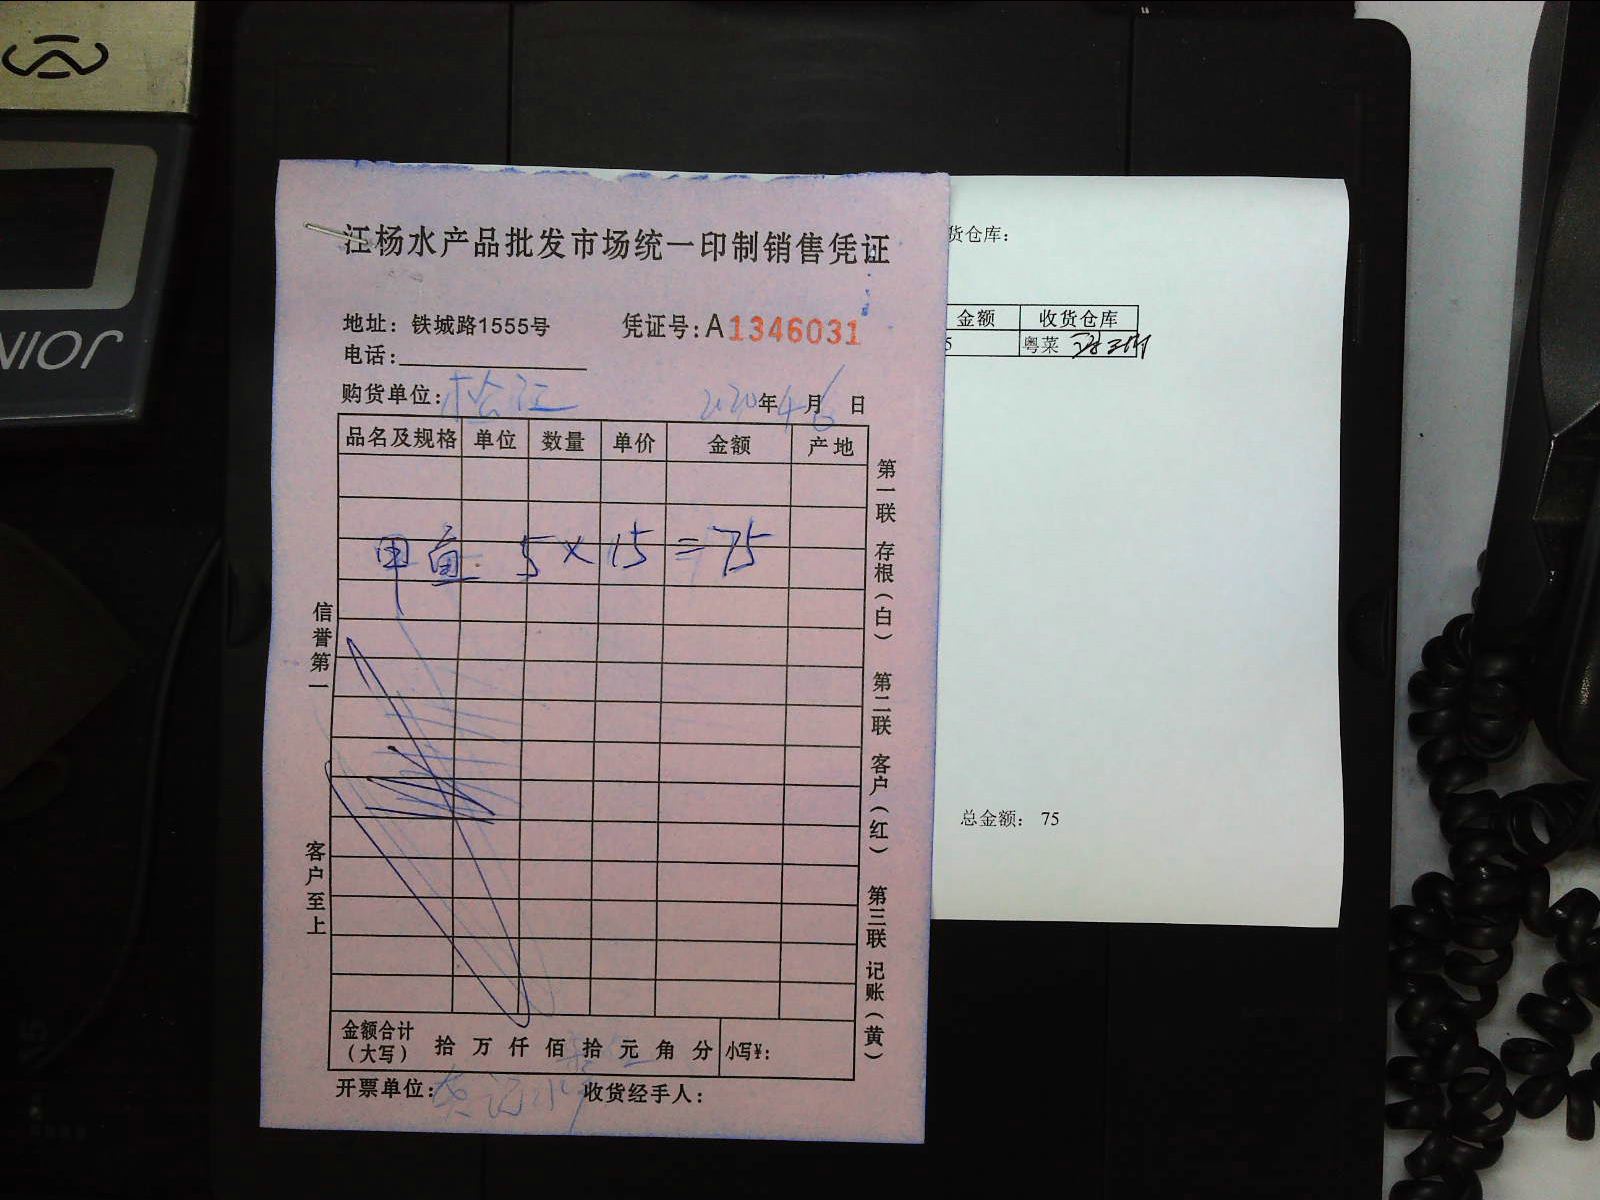 NIOR
江杨水产品批发市场统一印制销售凭证
地址：铁城路1555号 凭证号：A1346031
电话：
购货单位：松江 2020年4月6日
品名及规格 单位 数量 单价 金额 产地
甲鱼 5×15=75
信誉第一
客户至上
第一联 存根（白） 第二联 客户（红） 第三联 记账（黄）
金额合计（大写） 拾 万 仟 佰 拾 元 角 分 小写¥：
开票单位： 收货经手人：
货仓库：
金额 收货仓库
5 粤菜
总金额： 75